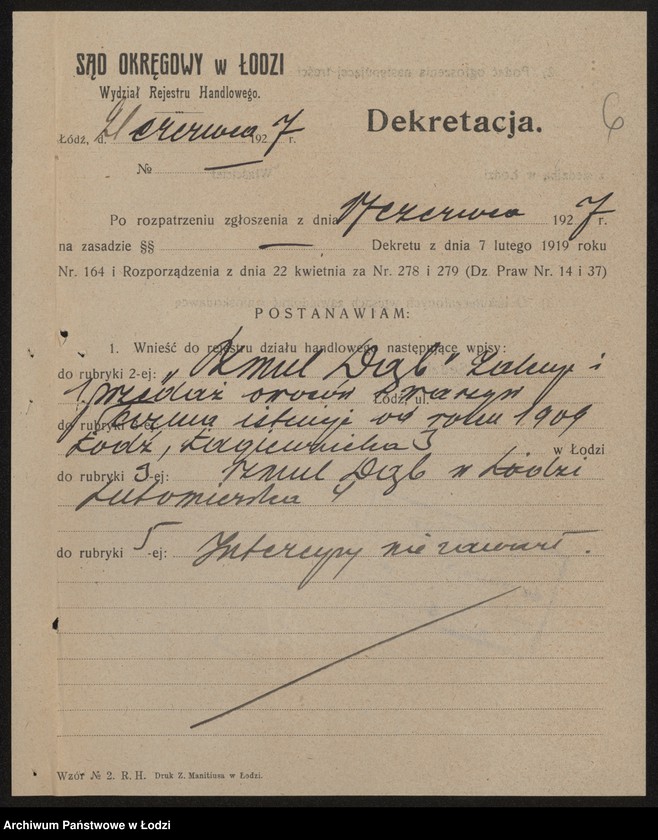 SĄD OKRĘGOWY w ŁODZI
Wydział Rejestru Handlowego.
Łódź, d. 21 czerwca 1927 r.
Dekretacja.
6
№ —
Po rozpatrzeniu zgłoszenia z dnia 17 czerwca 1927 r.
na zasadzie §§ — Dekretu z dnia 7 lutego 1919 roku
Nr. 164 i Rozporządzenia z dnia 22 kwietnia za Nr. 278 i 279 (Dz. Praw Nr. 14 i 37)
POSTANAWIAM:
1. Wnieść do rejestru działu handlowego następujące wpisy:
do rubryki 2-ej: „Szmul Dąb" Zakup i
sprzedaż owoców i warzyw
Łódź, ul.
do rubryki Firma istnieje od roku 1909
Łódź, Łagiewnicka 3 w Łodzi
do rubryki 3-ej: Szmul Dąb w Łodzi
Lutomierska 4
do rubryki 5-ej: Intercyzy nie zawarł.
Wzór № 2. R. H. Druk Z. Manitiusa w Łodzi.
Archiwum Państwowe w Łodzi